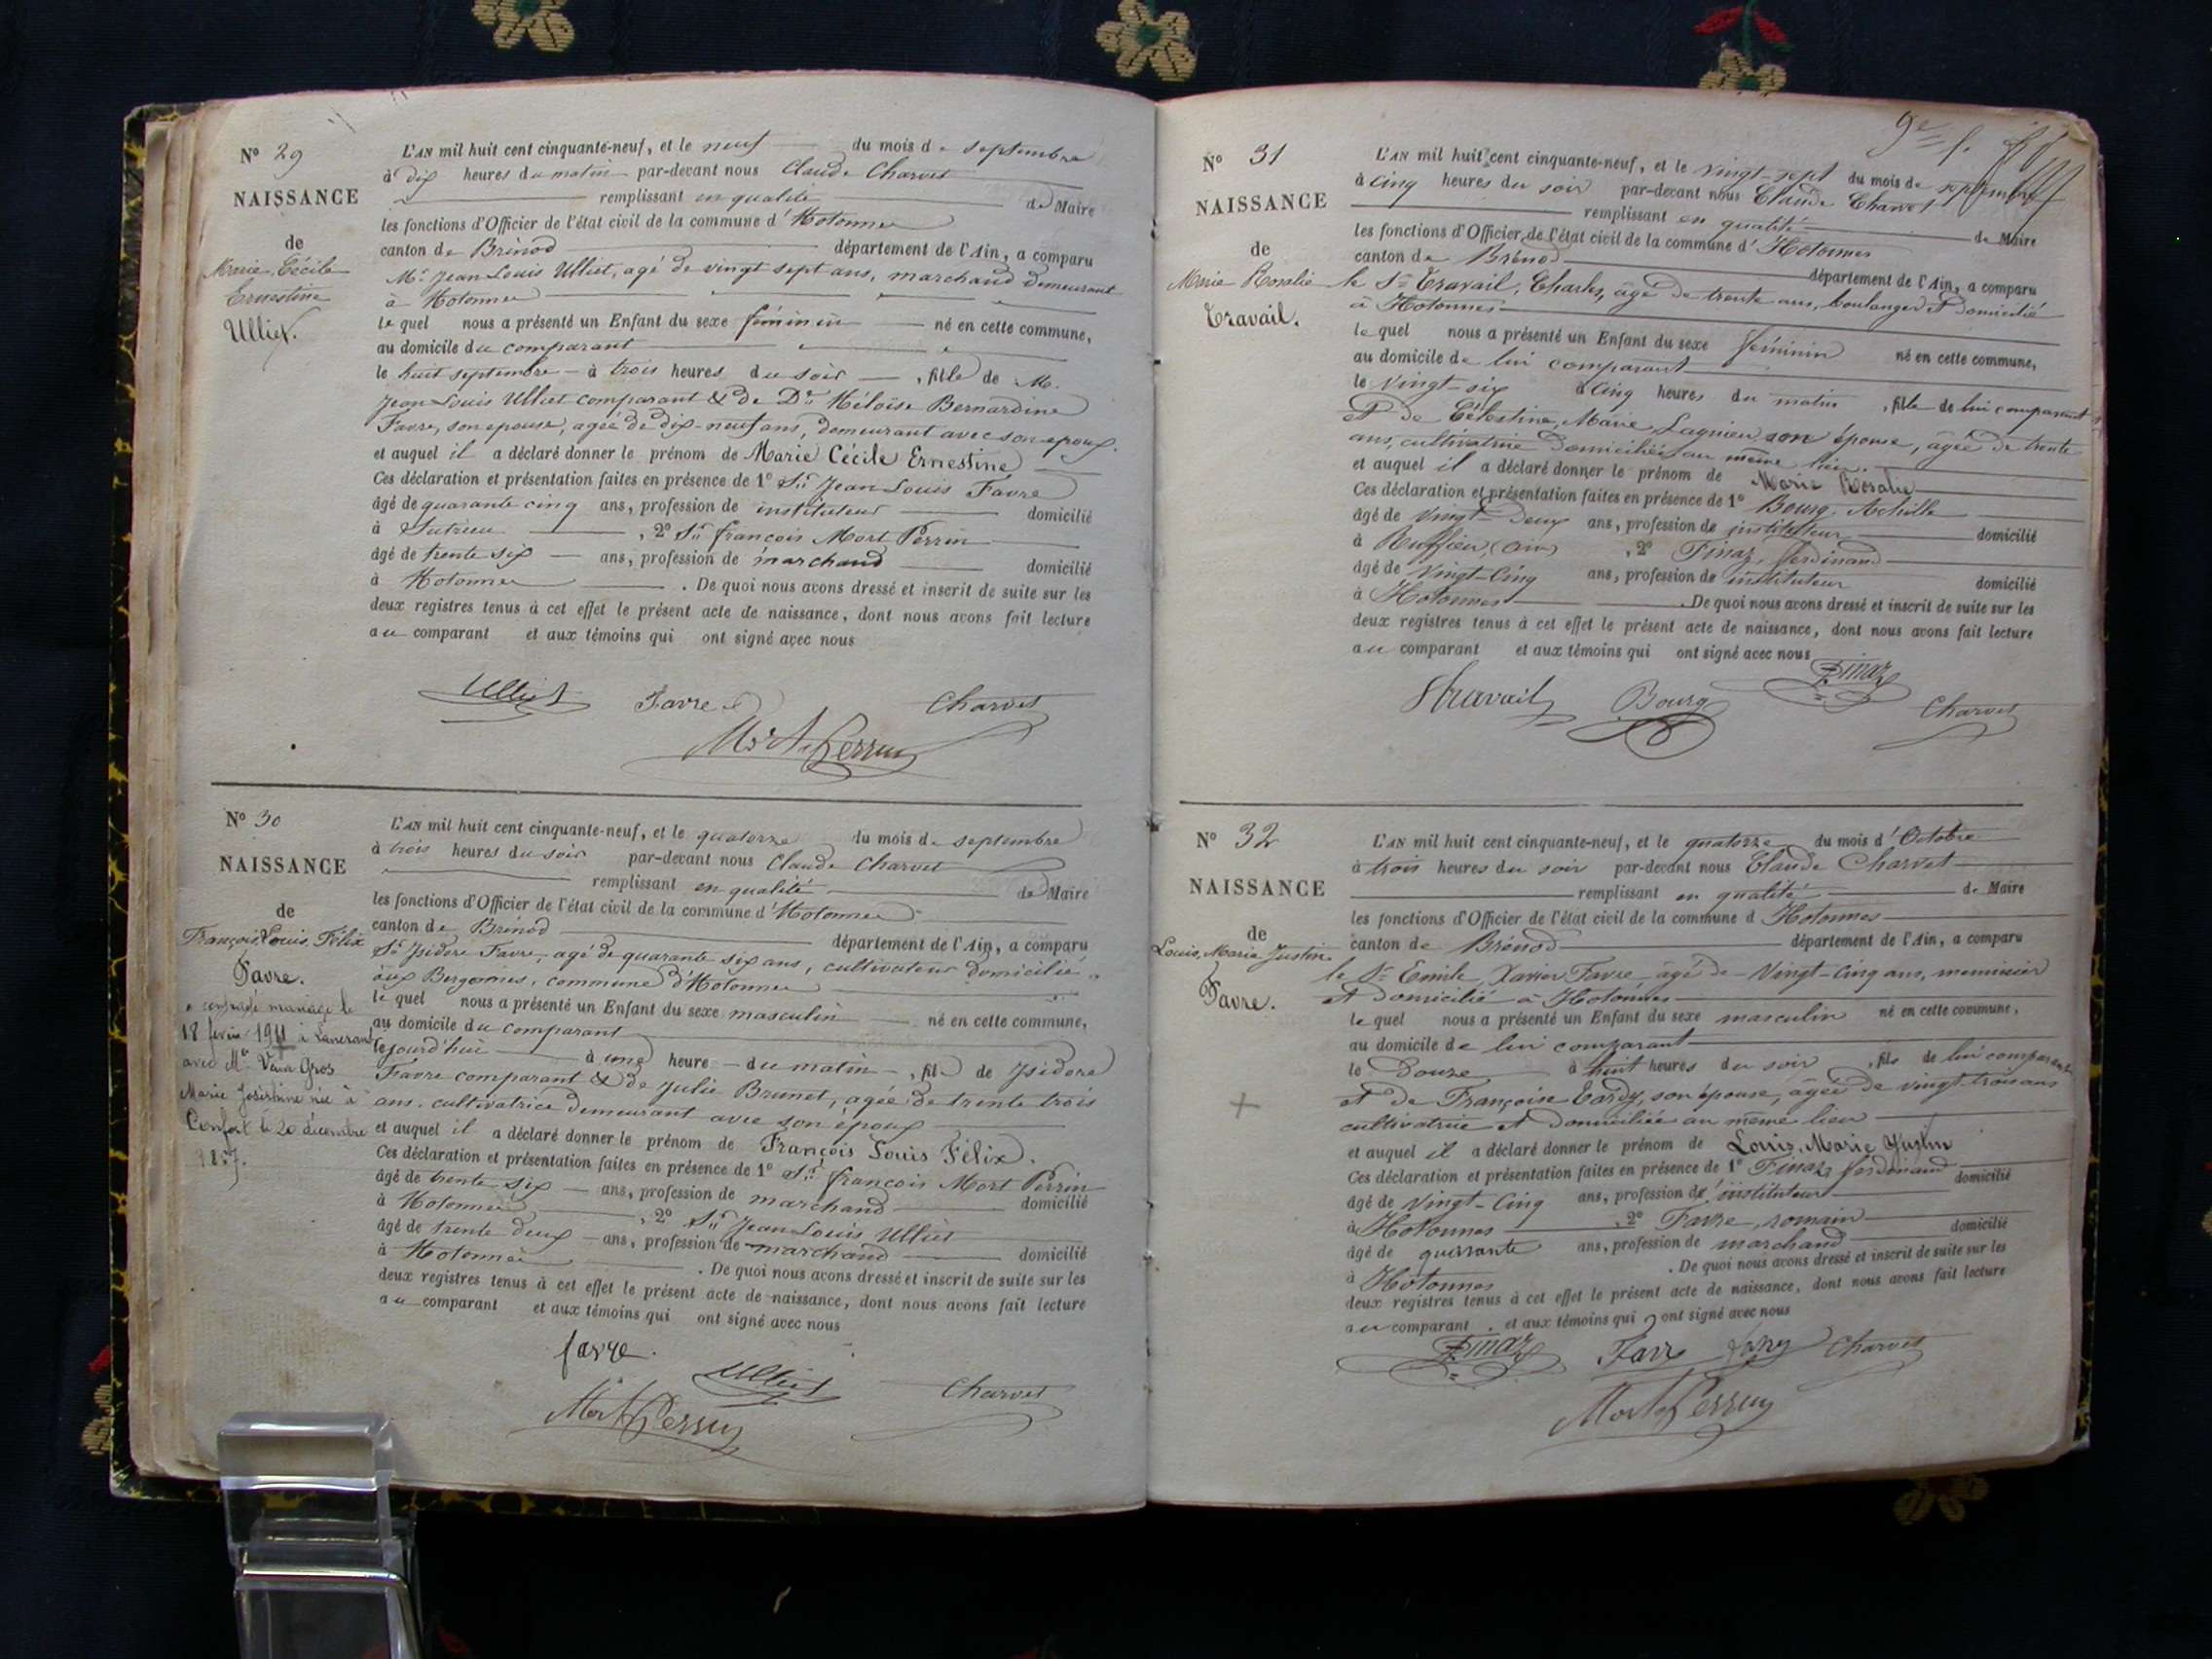 Nº 29
NAISSANCE
de
Marie Cécile
Ernestine
Ulliet.
L'AN mil huit cent cinquante-neuf, et le neuf du mois de septembre
à dix heures du matin par-devant nous Claude Charvet
remplissant en qualité de Maire
les fonctions d'Officier de l'état civil de la commune d'Hotonnes
canton de Brénod département de l'Ain, a comparu
Mr Jean Louis Ulliet, agé de vingt sept ans, marchand demeurant
à Hotonnes
lequel nous a présenté un Enfant du sexe féminin né en cette commune,
au domicile du comparant
le huit septembre à trois heures du soir, fille de M.
Jean Louis Ulliet comparant & de De Héloïse Bernardine
Favre, son épouse, agée de dix-neuf ans, demeurant avec son époux.
et auquel il a déclaré donner le prénom de Marie Cécile Ernestine
Ces déclaration et présentation faites en présence de 1º Sr Jean Louis Favre
âgé de quarante cinq ans, profession de instituteur domicilié
à Sutrieu, 2º Sr françois Mort Perrin
âgé de trente six ans, profession de marchand domicilié
à Hotonnes. De quoi nous avons dressé et inscrit de suite sur les
deux registres tenus à cet effet le présent acte de naissance, dont nous avons fait lecture
au comparant et aux témoins qui ont signé avec nous
Ulliet Favre Charvet
Mort Perrin
Nº 30
NAISSANCE
de
François Louis Félix
Favre.
a contracté mariage le
18 février 1911 à Lancrans
avec Mlle Gros
Marie Joséphine née à
Confort le 20 décembre
1857.
L'AN mil huit cent cinquante-neuf, et le quatorze du mois de septembre
à trois heures du soir par-devant nous Claude Charvet
remplissant en qualité de Maire
les fonctions d'Officier de l'état civil de la commune d'Hotonnes
canton de Brénod département de l'Ain, a comparu
Sr Isidore Favre, agé de quarante six ans, cultivateur domicilié
aux Bergonnes, commune d'Hotonnes
lequel nous a présenté un Enfant du sexe masculin né en cette commune,
au domicile du comparant
cejourd'hui à une heure du matin, fils de Isidore
Favre comparant & de Julie Brunet, agée de trente trois
ans, cultivatrice demeurant avec son époux
et auquel il a déclaré donner le prénom de François Louis Félix.
Ces déclaration et présentation faites en présence de 1º Sr françois Mort Perrin
âgé de trente six ans, profession de marchand domicilié
à Hotonnes, 2º Sr Jean Louis Ulliet
âgé de trente deux ans, profession de marchand domicilié
à Hotonnes. De quoi nous avons dressé et inscrit de suite sur les
deux registres tenus à cet effet le présent acte de naissance, dont nous avons fait lecture
au comparant et aux témoins qui ont signé avec nous
favre.
Ulliet Charvet
Mort Perrin
9e f.
Nº 31
NAISSANCE
de
Marie Rosalie
Travail.
L'AN mil huit cent cinquante-neuf, et le vingt-sept du mois de septembre
à cinq heures du soir par-devant nous Claude Charvet
remplissant en qualité de Maire
les fonctions d'Officier de l'état civil de la commune d'Hotonnes
canton de Brénod département de l'Ain, a comparu
le Sr Travail, Charles, âgé de trente ans, boulanger et domicilié
à Hotonnes
lequel nous a présenté un Enfant du sexe féminin né en cette commune,
au domicile de lui comparant
le vingt-six à cinq heures du matin, fille de lui comparant
et de Célestine, Marie Lagnieu son épouse, âgée de trente
ans, cultivatrice domiciliée au même lieu.
et auquel il a déclaré donner le prénom de Marie Rosalie
Ces déclaration et présentation faites en présence de 1º Bourg, Achille
âgé de vingt-deux ans, profession de instituteur domicilié
à Ruffieu, (Ain), 2º Finaz, ferdinand
âgé de vingt-cinq ans, profession de instituteur domicilié
à Hotonnes. De quoi nous avons dressé et inscrit de suite sur les
deux registres tenus à cet effet le présent acte de naissance, dont nous avons fait lecture
au comparant et aux témoins qui ont signé avec nous
Finaz
Travail Bourg Charvet
Nº 32
NAISSANCE
de
Louis, Marie Justin
Favre.
L'AN mil huit cent cinquante-neuf, et le quatorze du mois d'Octobre
à trois heures du soir par-devant nous Claude Charvet
remplissant en qualité de Maire
les fonctions d'Officier de l'état civil de la commune d Hotonnes
canton de Brénod département de l'Ain, a comparu
le Sr Emile, Xavier Favre âgé de vingt-cinq ans, menuisier
et domicilié à Hotonnes
lequel nous a présenté un Enfant du sexe masculin né en cette commune,
au domicile de lui comparant
le douze à huit heures du soir, fils de lui comparant
et de Françoise Tardy, son épouse, âgée de vingt-trois ans
cultivatrice et domiciliée au même lieu
et auquel il a déclaré donner le prénom de Louis, Marie Justin
Ces déclaration et présentation faites en présence de 1º Finaz ferdinand
âgé de vingt-cinq ans, profession de instituteur domicilié
à Hotonnes, 2º Favre, romain
âgé de quarante ans, profession de marchand domicilié
à Hotonnes. De quoi nous avons dressé et inscrit de suite sur les
deux registres tenus à cet effet le présent acte de naissance, dont nous avons fait lecture
au comparant et aux témoins qui ont signé avec nous
Finaz Favre Charvet
Mort Perrin